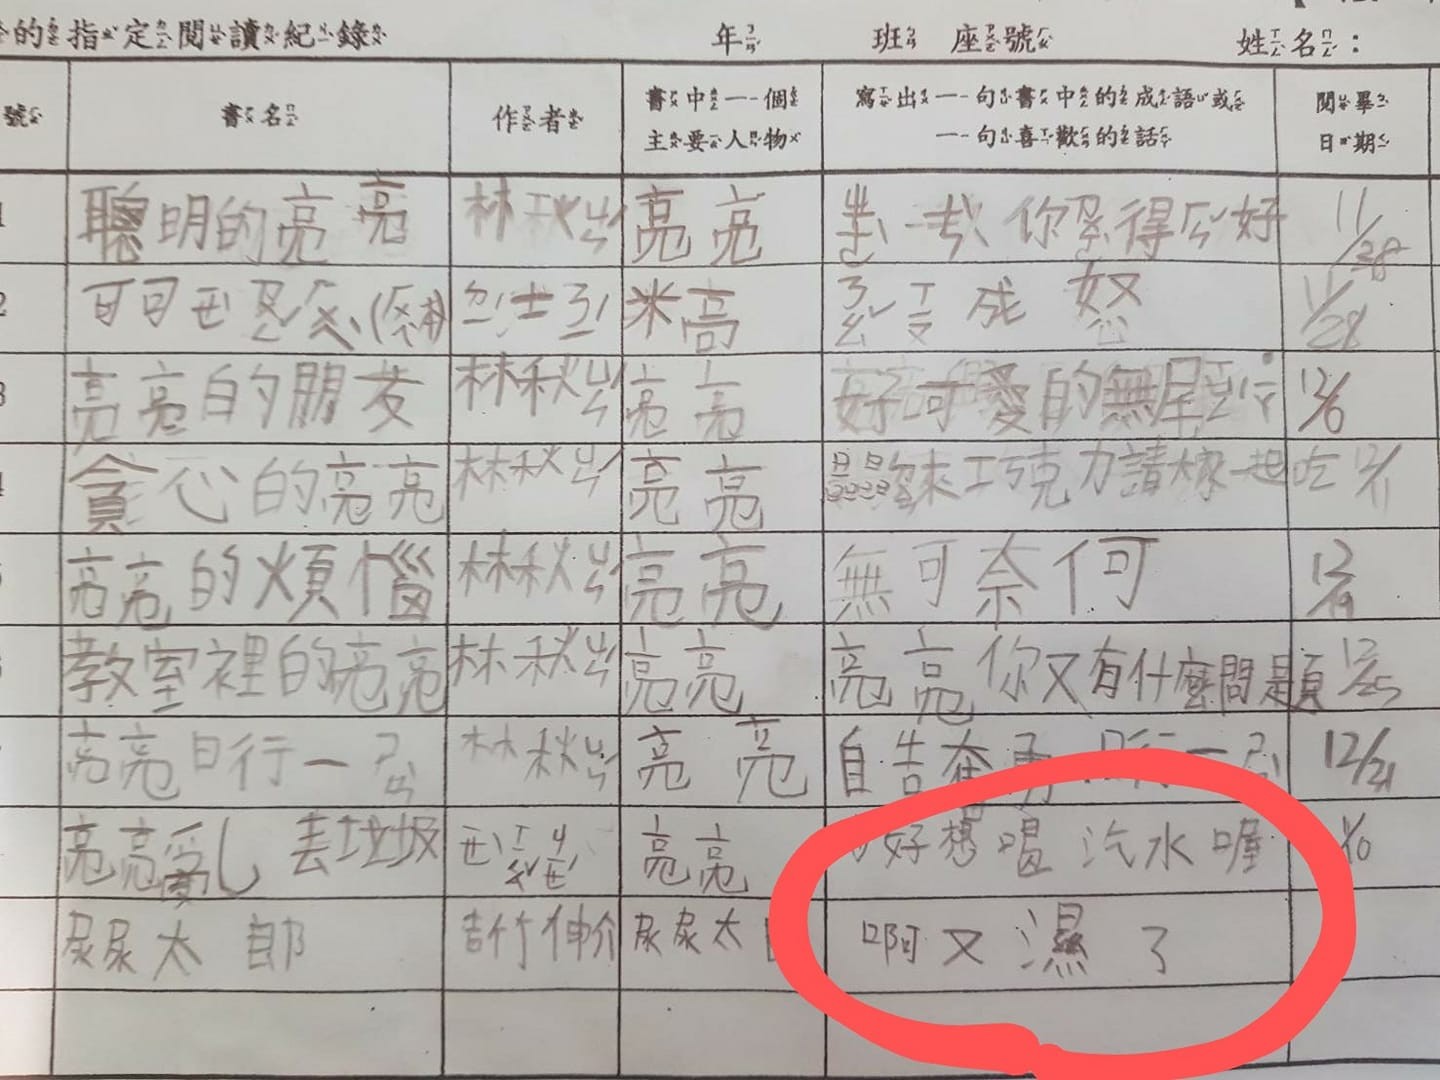 的指定閱讀紀錄 年 班 座號 姓名：
號 書名 作者 書中一個主要人物 寫出一句書中的成語或一句喜歡的話 閱畢日期
聰明的亮亮 林秋ㄔㄨ 亮亮 你 得 好 11/28
可可 米高 成怒 11/28
亮亮的朋友 林秋 亮亮 好可愛的無尾 12/6
貪心的亮亮 林秋 亮亮 巧克力請大家一起吃 12/11
亮亮的煩惱 林秋 亮亮 無可奈何 12/19
教室裡的亮亮 林秋 亮亮 亮亮你又有什麼問題 12/25
亮亮日行一ㄕㄢ 林秋 亮亮 自告奮勇 日行一 12/21
亮亮愛亂丟垃圾 亮亮 好想喝汽水喔 1/10
尿尿太郎 吉竹伸介 尿尿太 啊又濕了